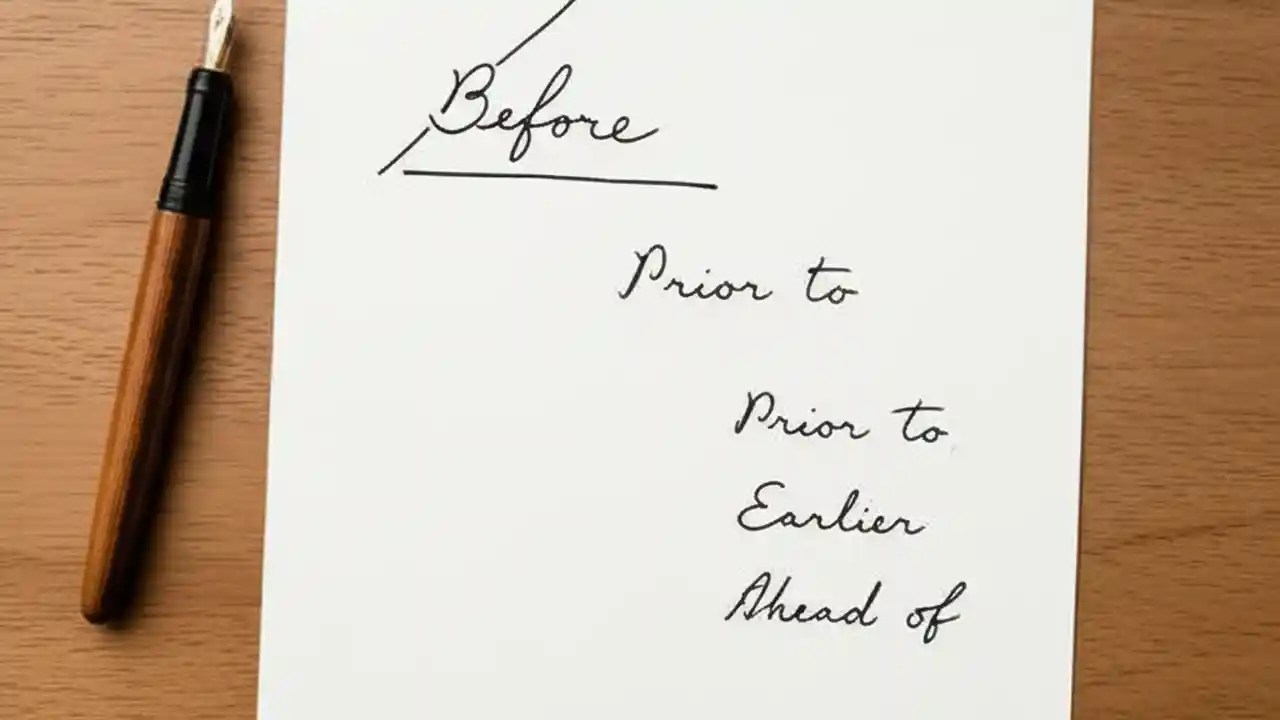 Before
Prior to
Prior to
Earlier
Ahead of